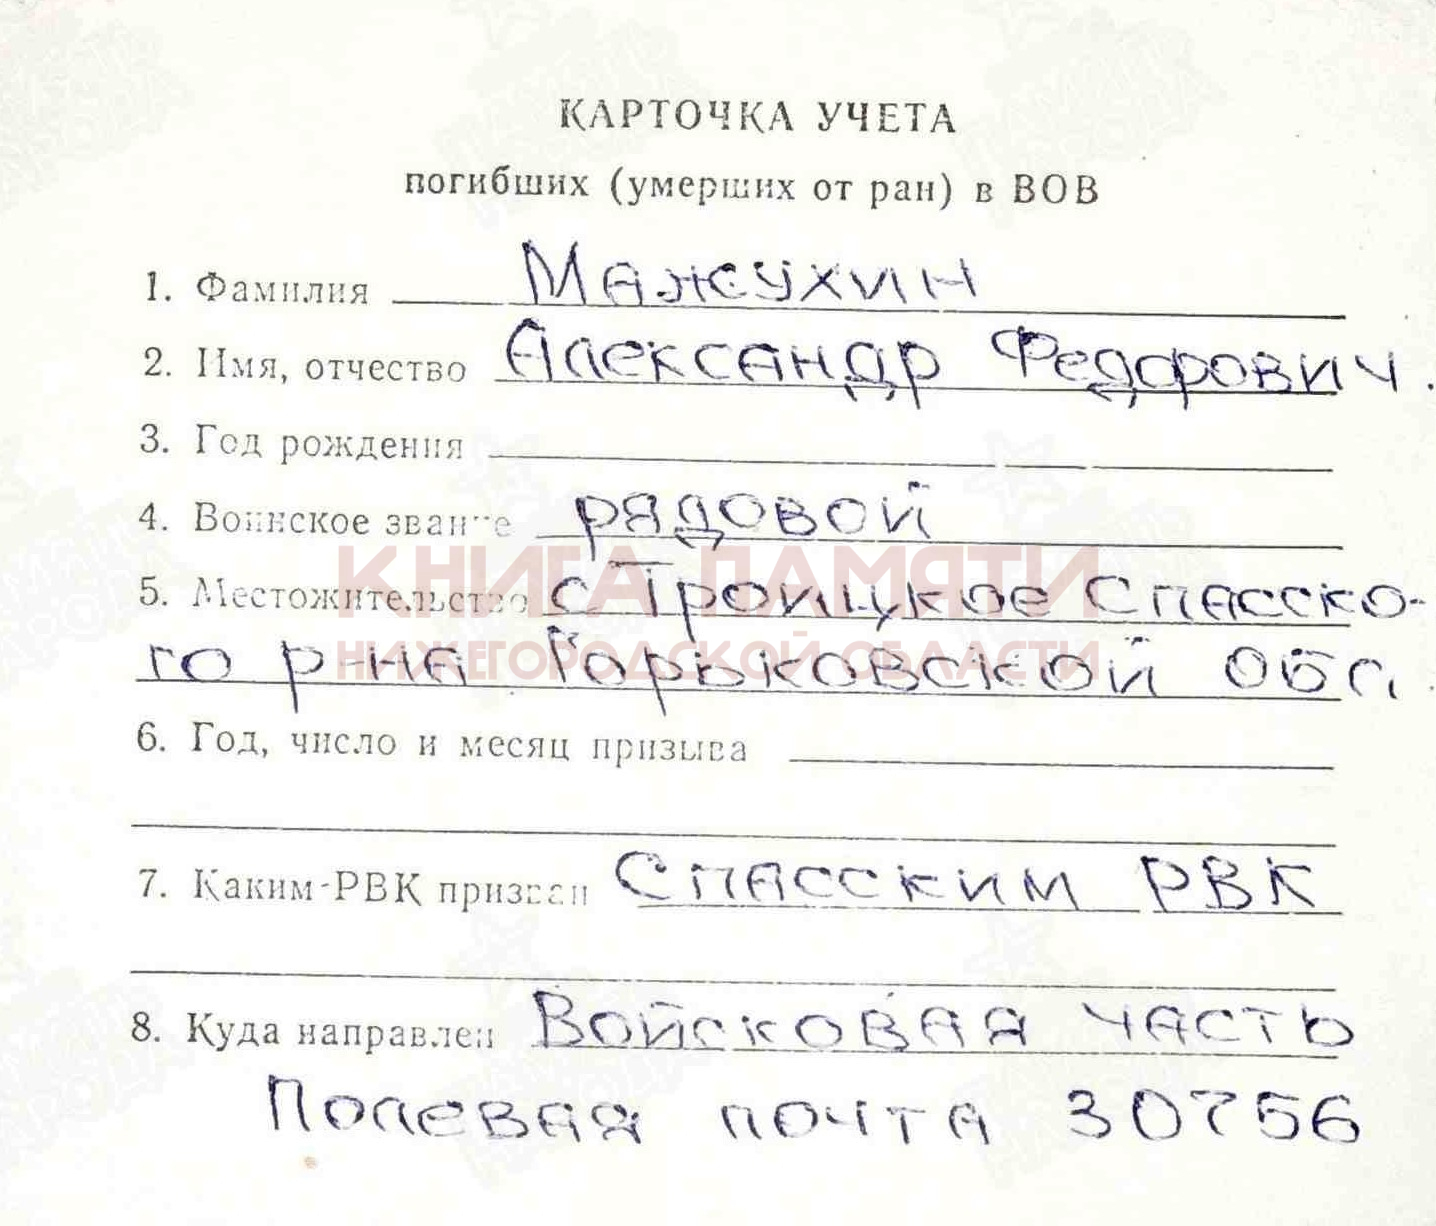 КАРТОЧКА УЧЕТА
погибших (умерших от ран) в ВОВ
1. Фамилия Мажухин
2. Имя, отчество Александр Федорович.
3. Год рождения
4. Воинское звание рядовой
5. Местожительство с Троицкое Спасско-
го р-на Горьковской обл.
КНИГА ПАМЯТИ
НИЖЕГОРОДСКОЙ ОБЛАСТИ
6. Год, число и месяц призыва
7. Каким-РВК призван Спасским РВК
8. Куда направлен Войсковая часть
Полевая почта 30756